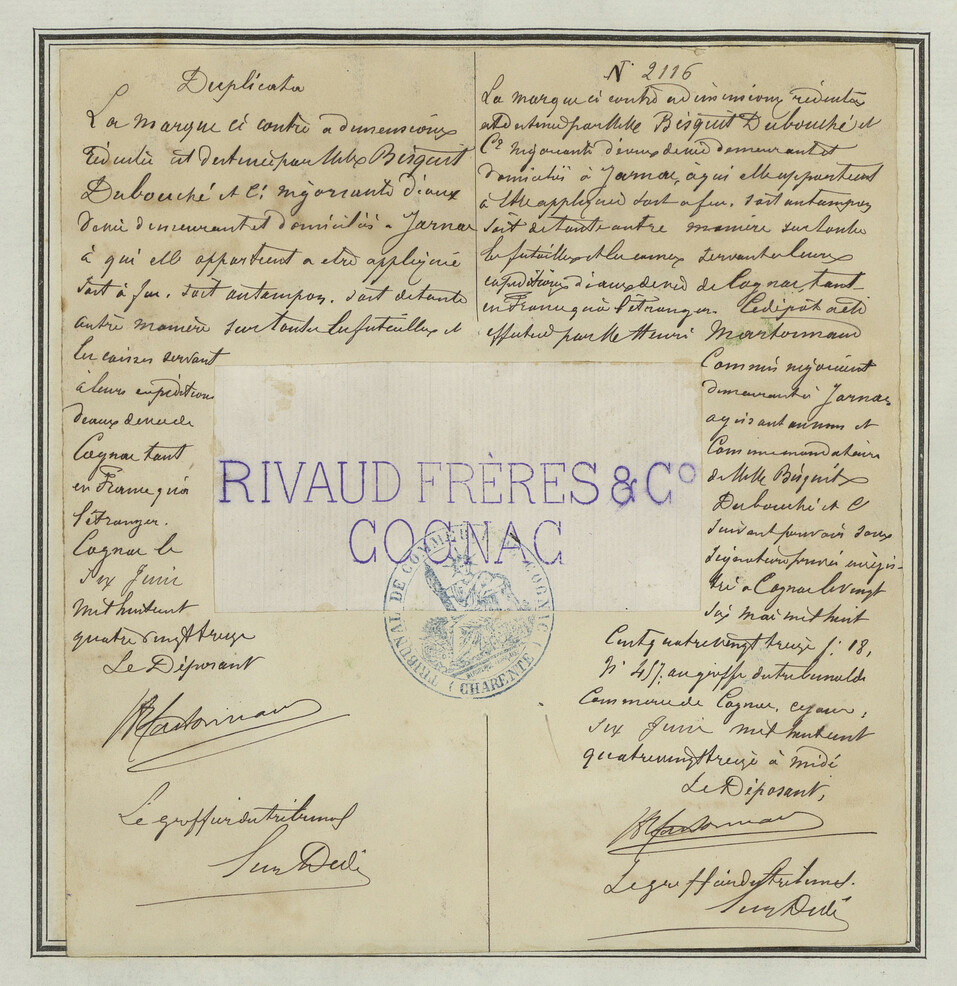 Duplicata
La marque ci contre a dimensions
réduites est destinée par MMrs Bisquit
Dubouché et Cie négociants d'eaux
de vie demeurant et domiciliés à Jarnac
à qui elle appartient a etre appliquée
soit à feu, soit au tampon, soit de toute
autre manière sur toutes les futailles et
les caisses servant
à leurs expéditions
d'eaux de vie de
Cognac tant
en France qu'à
l'étranger.
Cognac le
six Juin
mil huit cent
quatre vingt treize
Le Déposant
Le greffier du tribunal
N° 2116
La marque ci contre a dimensions réduites
est destinée par MMrs Bisquit Dubouché et
Cie négociants d'eaux de vie demeurant et
domiciliés à Jarnac, à qui elle appartient
à être appliquée soit a feu, soit au tampon
soit de toute autre manière sur toutes
les futailles et les caisses servant a leurs
expéditions d'eaux de vie de Cognac tant
en France qu'à l'étranger. Le dépôt a été
effectué par Mr Henri Martonnaud
Commis négociant
demeurant à Jarnac
agissant au nom et
Comme mandataire
de MMrs Bisquit
Dubouché et Cie
suivant pouvoir sous
signature privée enregis-
tré a Cognac le vingt
six mai mil huit
Cent quatre vingt treize f. 18,
N° 457, au greffe du tribunal de
Commerce de Cognac, ce jour,
six Juin mil huit cent
quatre vingt treize à midi
Le Déposant,
Le greffier du tribunal.
RIVAUD FRÈRES & Cº
COGNAC
TRIBUNAL DE COMMERCE DE COGNAC
(CHARENTE)